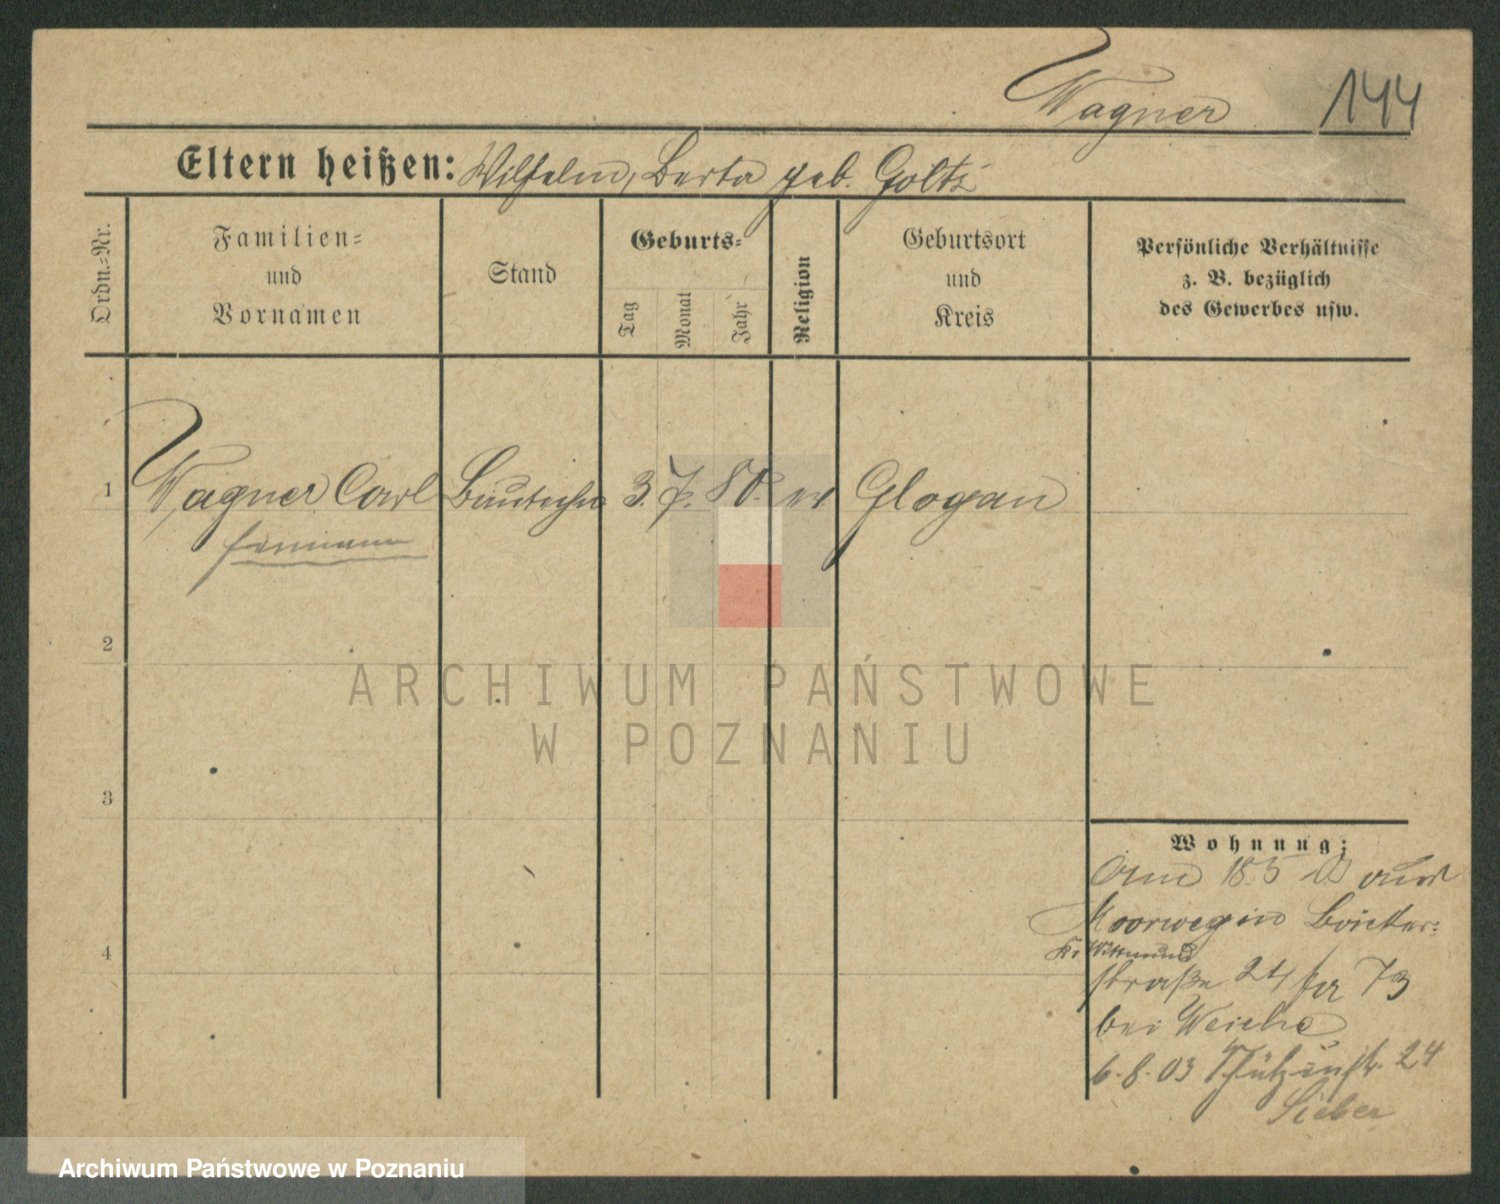 Wagner 144
Eltern heißen: Wilhelm, Berta geb. Goltz
Ordn.-Nr.
Familien-
und
Vornamen
Stand
Geburts-
Tag
Monat
Jahr
Religion
Geburtsort
und
Kreis
Persönliche Verhältnisse
z. B. bezüglich
des Gewerbes usw.
1 Wagner Carl Bautechn 3. 7. 80. ev Glogau
Hermann
2
3
4
Wohnung:
Am 18.5 aus
Moorwegen Breiter-
Kr Wittmund
straße 24 73
bei Weiche
6.8.03 Schützenstr. 24
Sieber
ARCHIWUM PAŃSTWOWE
W POZNANIU
Archiwum Państwowe w Poznaniu